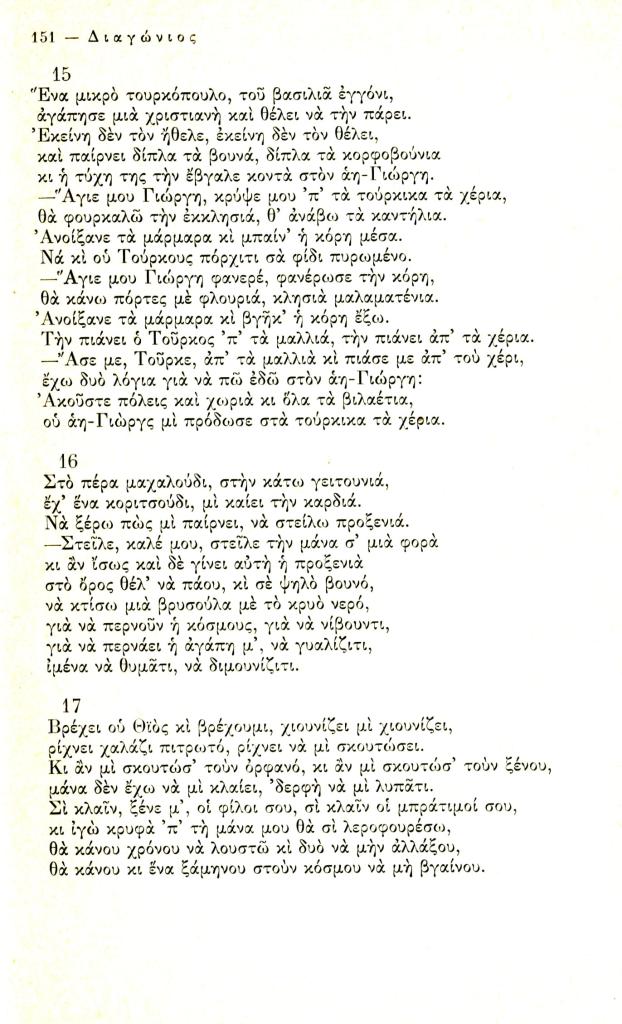 151 — Διαγώνιος
15
Ἕνα μικρὸ τουρκόπουλο, τοῦ βασιλιᾶ ἐγγόνι,
ἀγάπησε μιὰ χριστιανὴ καὶ θέλει νὰ τὴν πάρει.
Ἐκείνη δὲν τὸν ἤθελε, ἐκείνη δὲν τὸν θέλει,
καὶ παίρνει δίπλα τὰ βουνά, δίπλα τὰ κορφοβούνια
κι ἡ τύχη της τὴν ἔβγαλε κοντὰ στὸν ἁη-Γιώργη.
—Ἅγιε μου Γιώργη, κρύψε μου 'π' τὰ τούρκικα τὰ χέρια,
θὰ φουρκαλῶ τὴν ἐκκλησιά, θ' ἀνάβω τὰ καντήλια.
Ἀνοίξανε τὰ μάρμαρα κὶ μπαίν' ἡ κόρη μέσα.
Νά κὶ οὑ Τούρκους πόρχιτι σὰ φίδι πυρωμένο.
—Ἅγιε μου Γιώργη φανερέ, φανέρωσε τὴν κόρη,
θὰ κάνω πόρτες μὲ φλουριά, κλησιὰ μαλαματένια.
Ἀνοίξανε τὰ μάρμαρα κὶ βγῆκ' ἡ κόρη ἔξω.
Τὴν πιάνει ὁ Τοῦρκος 'π' τὰ μαλλιά, τὴν πιάνει ἀπ' τὰ χέρια.
—Ἄσε με, Τοῦρκε, ἀπ' τὰ μαλλιὰ κὶ πιάσε με ἀπ' τοὺ χέρι,
ἔχω δυὸ λόγια γιὰ νὰ πῶ ἐδῶ στὸν ἁη-Γιώργη:
Ἀκοῦστε πόλεις καὶ χωριὰ κι ὅλα τὰ βιλαέτια,
οὑ ἁη-Γιώργς μὶ πρόδωσε στὰ τούρκικα τὰ χέρια.
16
Στὸ πέρα μαχαλούδι, στὴν κάτω γειτουνιά,
ἔχ' ἕνα κοριτσούδι, μὶ καίει τὴν καρδιά.
Νὰ ξέρω πὼς μὶ παίρνει, νὰ στείλω προξενιά.
—Στεῖλε, καλέ μου, στεῖλε τὴν μάνα σ' μιὰ φορὰ
κι ἂν ἴσως καὶ δὲ γίνει αὐτὴ ἡ προξενιὰ
στὸ ὄρος θέλ' νὰ πάου, κὶ σὲ ψηλὸ βουνό,
νὰ κτίσω μιὰ βρυσούλα μὲ τὸ κρυὸ νερό,
γιὰ νὰ περνοῦν ἡ κόσμους, γιὰ νὰ νίβουντι,
γιὰ νὰ περνάει ἡ ἀγάπη μ', νὰ γυαλίζιτι,
ἰμένα νὰ θυμᾶτι, νὰ διμουνίζιτι.
17
Βρέχει οὑ Θιὸς κὶ βρέχουμι, χιουνίζει μὶ χιουνίζει,
ρίχνει χαλάζι πιτρωτό, ρίχνει νὰ μὶ σκουτώσει.
Κι ἂν μὶ σκουτώσ' τοὺν ὀρφανό, κι ἂν μὶ σκουτώσ' τοὺν ξένου,
μάνα δὲν ἔχω νὰ μὶ κλαίει, 'δερφὴ νὰ μὶ λυπᾶτι.
Σὶ κλαῖν, ξένε μ', οἱ φίλοι σου, σὶ κλαῖν οἱ μπράτιμοί σου,
κι ἰγὼ κρυφὰ 'π' τὴ μάνα μου θὰ σὶ λεροφουρέσω,
θὰ κάνου χρόνου νὰ λουστῶ κὶ δυὸ νὰ μὴν ἀλλάξου,
θὰ κάνου κι ἕνα ξάμηνου στοὺν κόσμου νὰ μὴ βγαίνου.